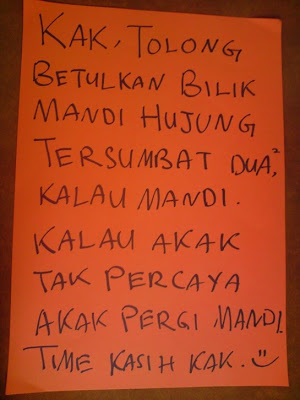 KAK, TOLONG
BETULKAN BILIK
MANDI HUJUNG
TERSUMBAT DUA²,
KALAU MANDI.
KALAU AKAK
TAK PERCAYA
AKAK PERGI MANDI.
TIME KASIH KAK.